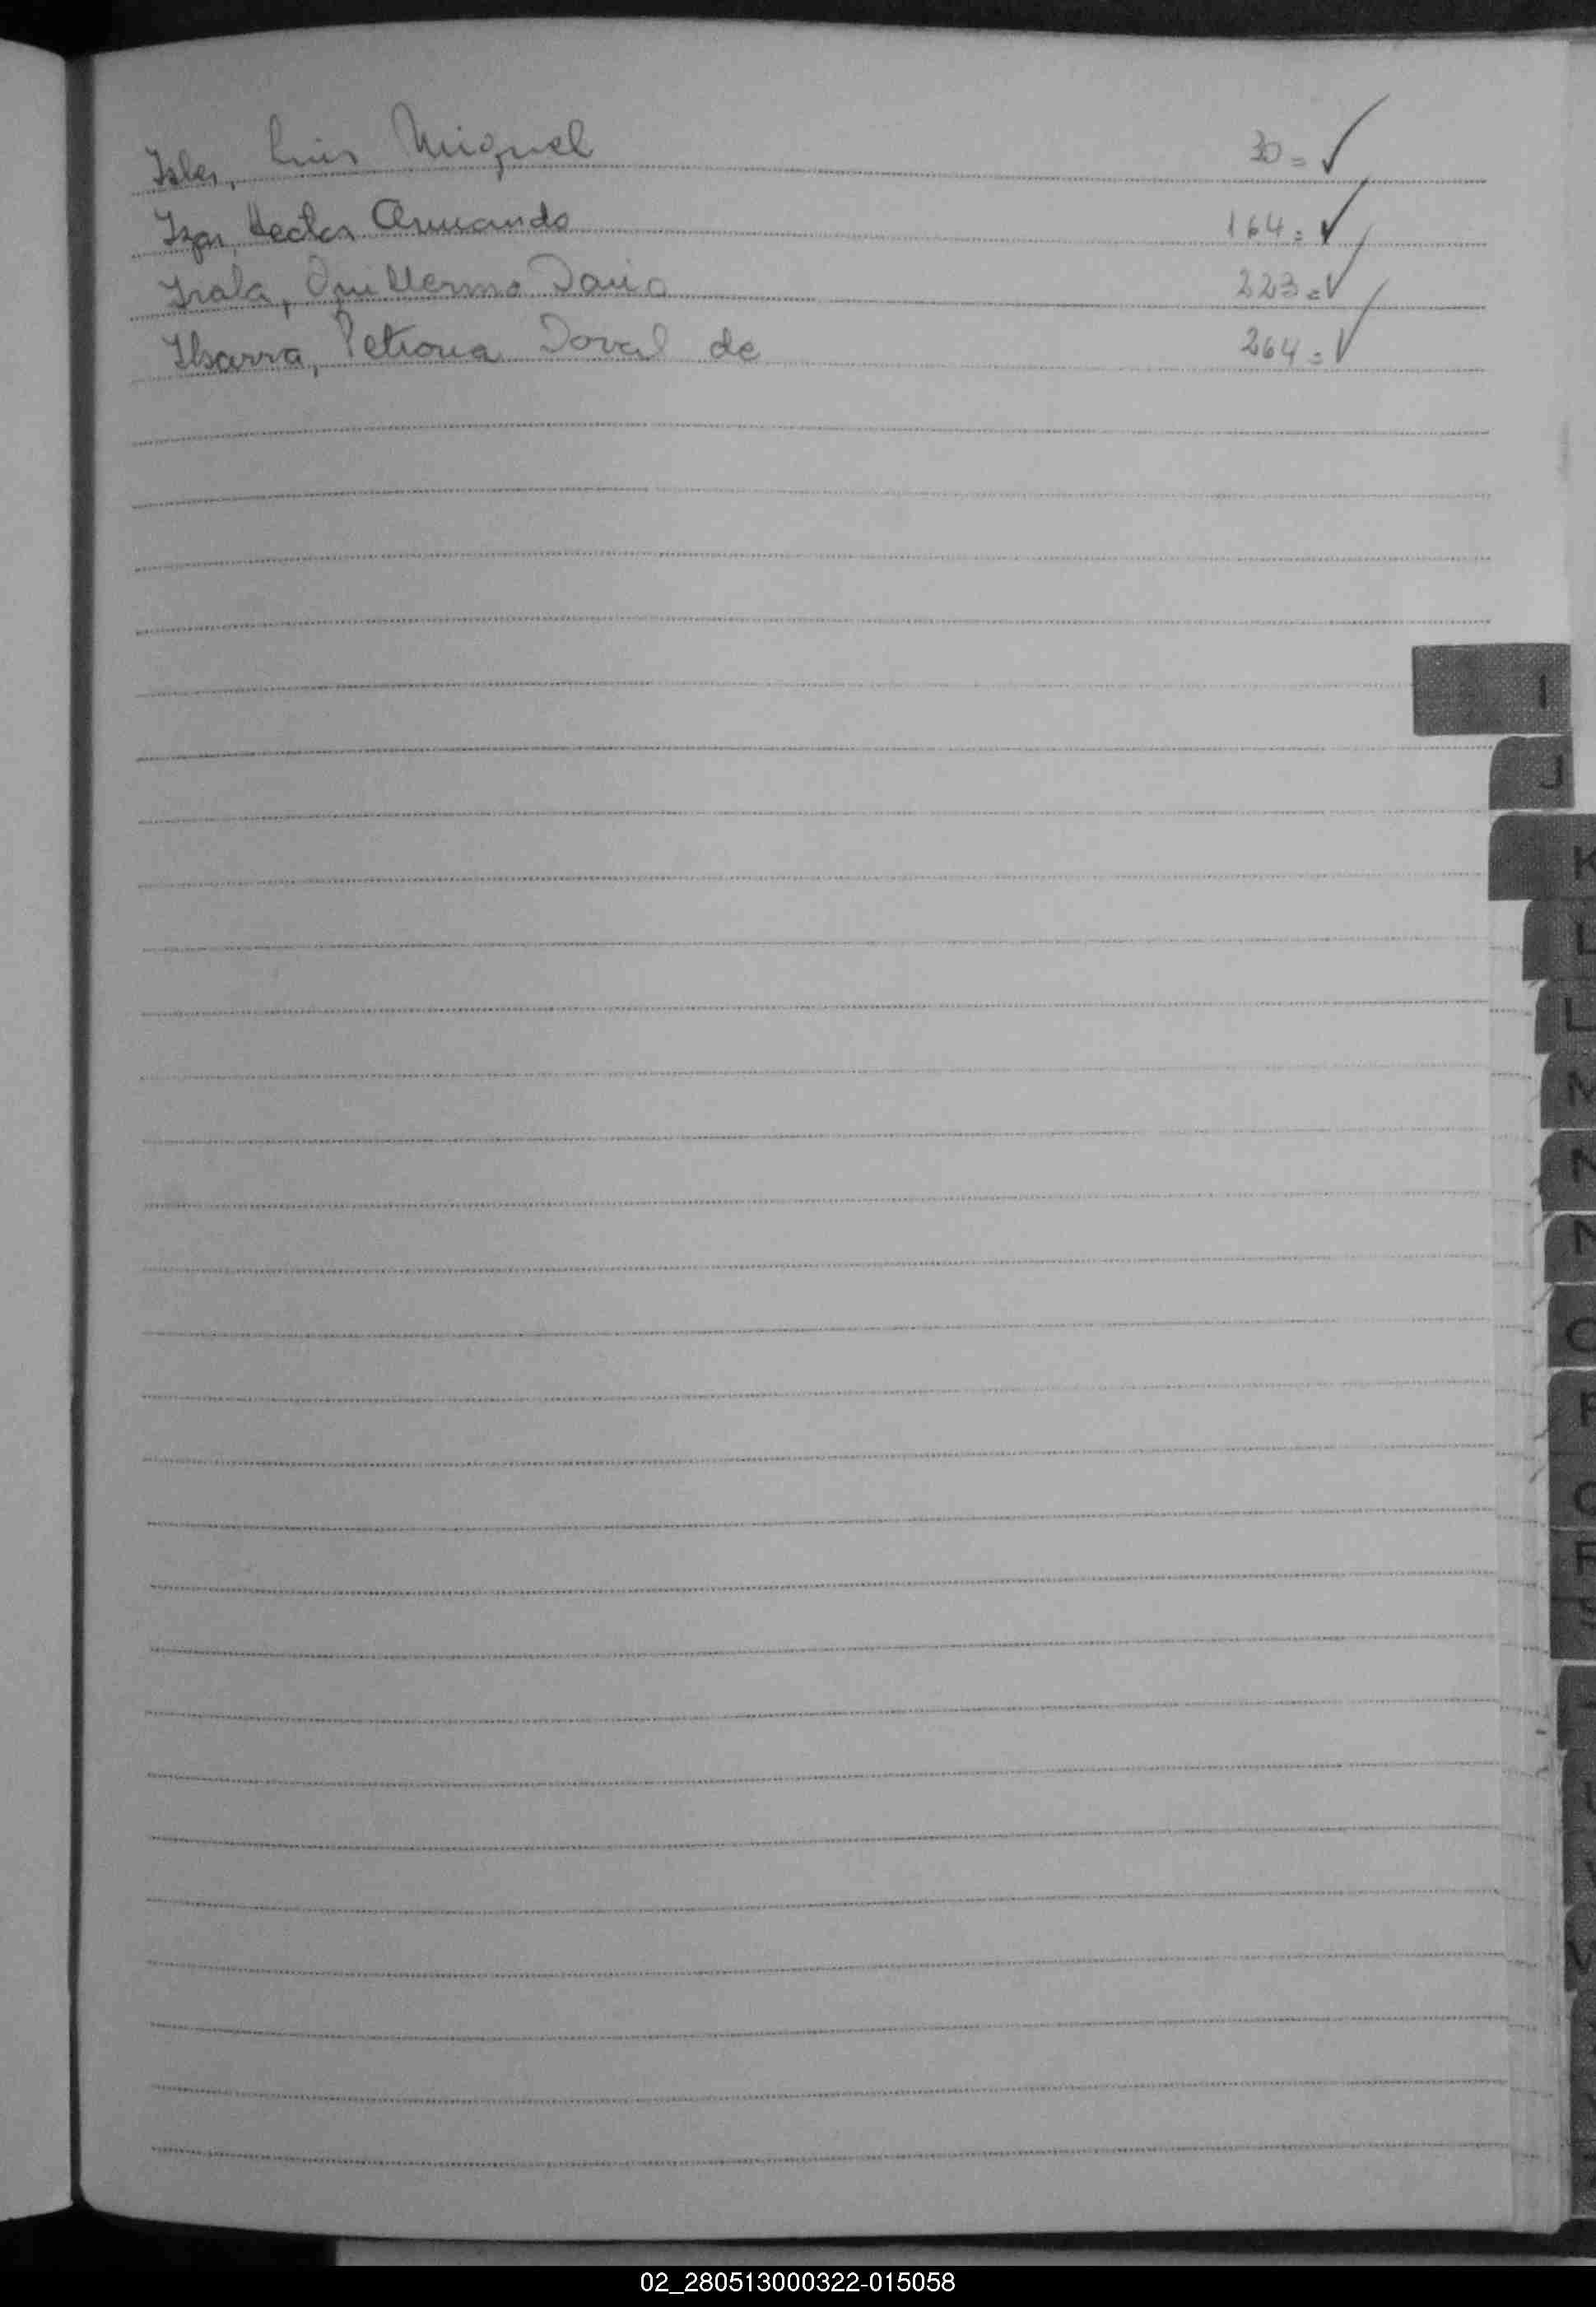 Isles, Luis Miguel 30 = ✓
Izar, Hector Armando 164 = ✓
Irala, Guillermo Dario 223 = ✓
Ibarra, Petrona Doval de 264 = ✓
I
J
K
L
L
M
N
N
O
P
Q
R
S
02_280513000322-015058